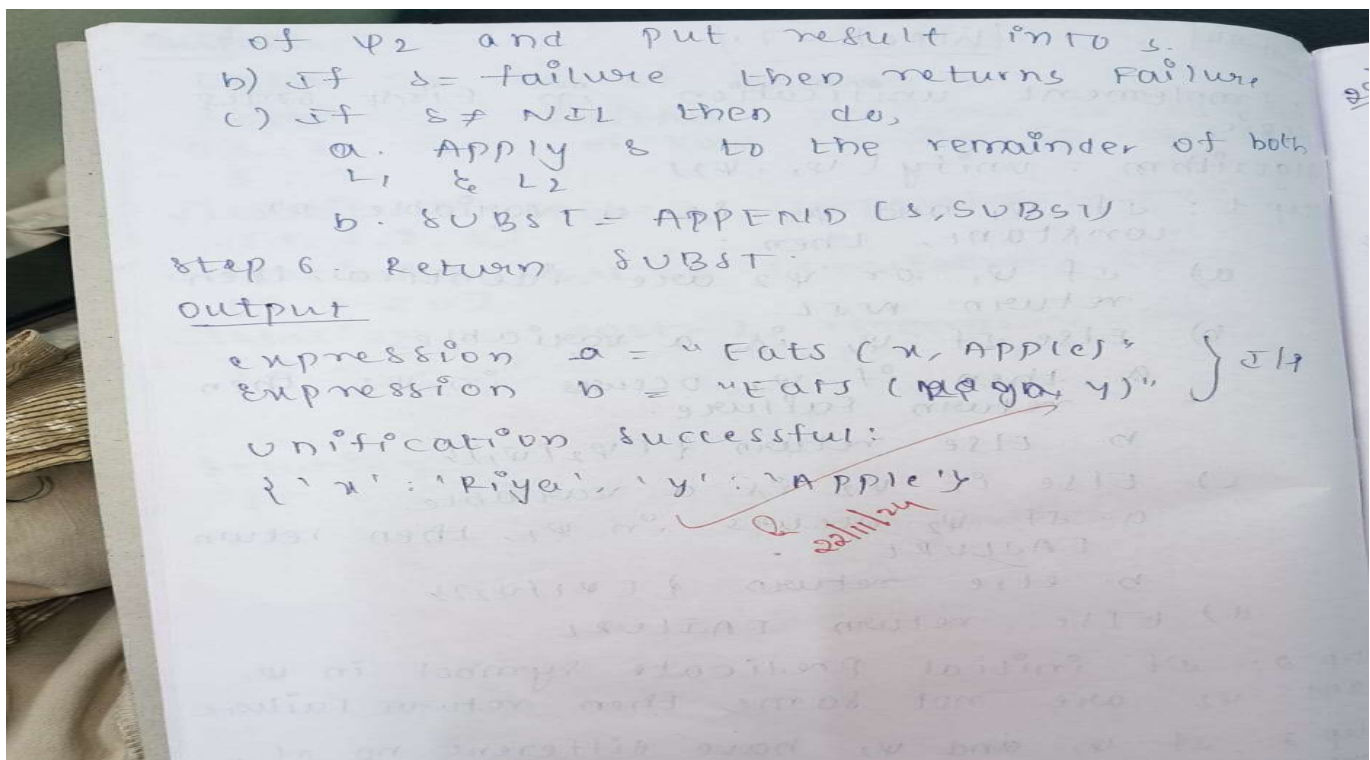 of ψ2 and put result into s.
b) If s = failure then returns Failure
c) If s ≠ NIL then do,
a. Apply s to the remainder of both
L1 & L2
b. SUBST = APPEND (S, SUBST)
step 6 Return SUBST.
output
expression a = "Eats (x, Apple)" } I/P
expression b = "Eats ( y)"
Unification successful:
{'x' : 'Riya', 'y' : 'Apple'}
22/11/24